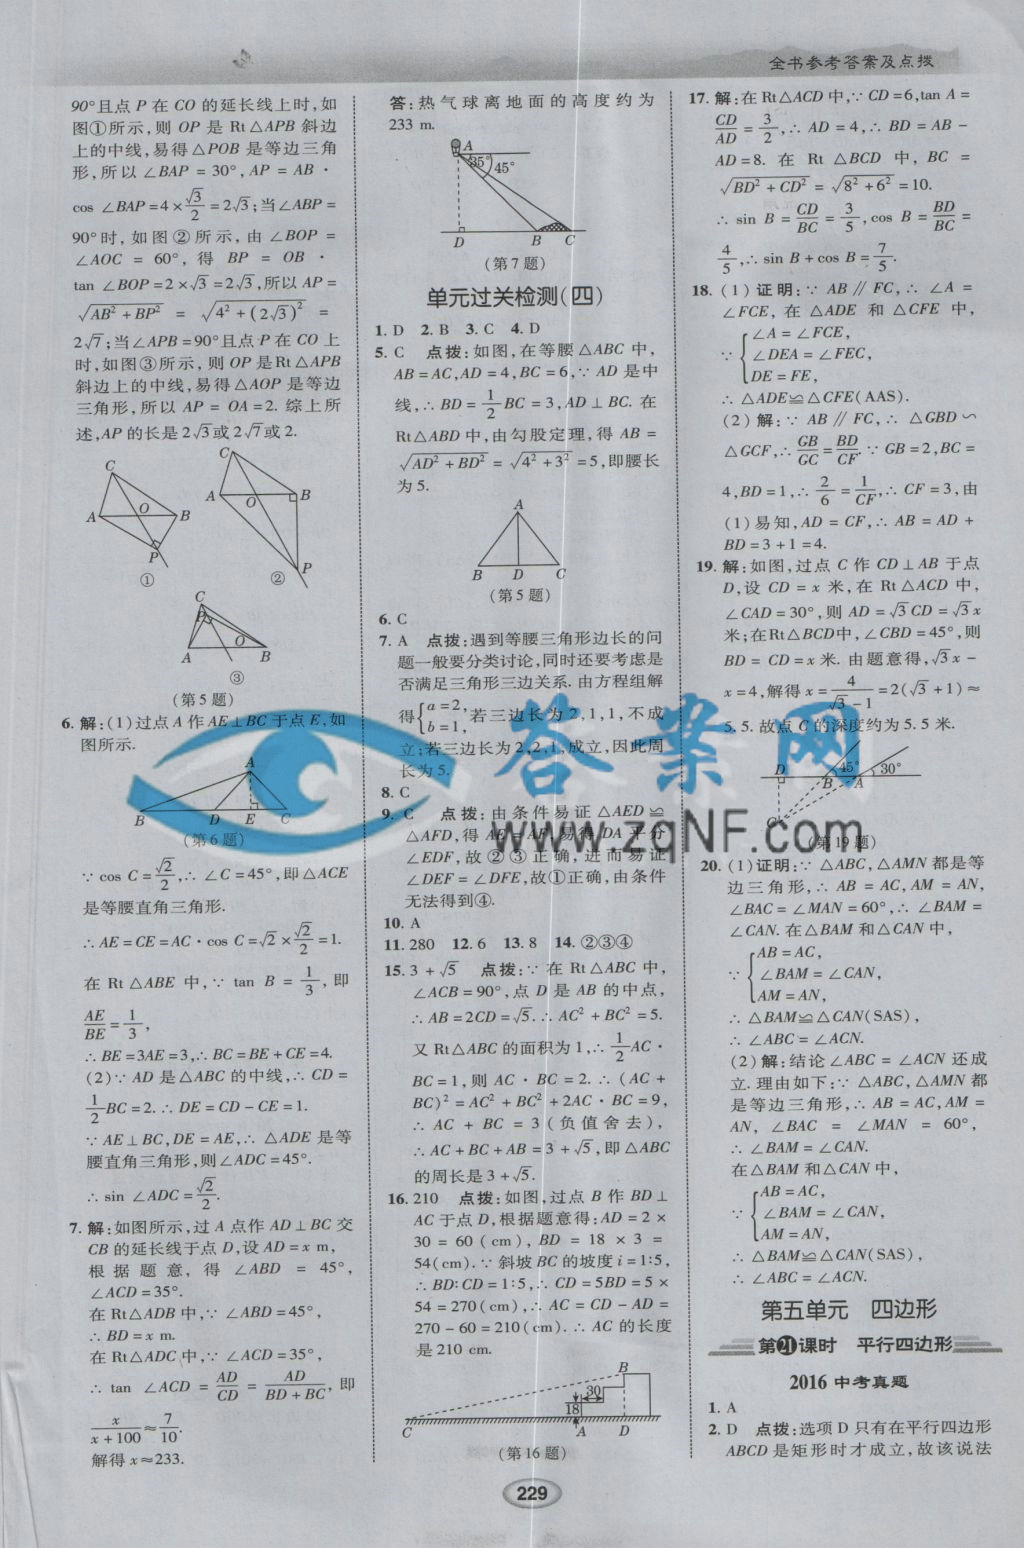 全书参考答案及点拨
90°且点 P 在 CO 的延长线上时,如
图①所示,则 OP 是 Rt△APB 斜边
上的中线,易得△POB 是等边三角
形,所以 ∠BAP = 30°,AP = AB ·
cos ∠BAP=4×√3/2=2√3;当∠ABP=
90°时,如图②所示,由∠BOP=
∠AOC = 60°,得 BP = OB ·
tan ∠BOP=2×√3=2√3,所以 AP=
√(AB²+BP²) = √(4²+(2√3)²) =
2√7;当∠APB=90°且点P在 CO 上
时,如图③所示,则 OP是Rt△APB
斜边上的中线,易得△AOP 是等边
三角形,所以 AP = OA=2. 综上所
述,AP 的长是 2√3或 2√7或 2.
C
A
O
B
P
①
C
A
O
B
P
②
C
P
O
A
B
③
(第 5 题)
6. 解:(1)过点 A 作 AE⊥BC 于点 E,如
图所示.
A
B
D
E
C
(第 6 题)
∵ cos C=√2/2,∴ ∠C=45°,即△ACE
是等腰直角三角形.
∴ AE=CE=AC·cos C=√2×√2/2=1.
在 Rt △ABE 中,∵ tan B = 1/3,即
AE/BE=1/3,
∴ BE=3AE=3,∴ BC=BE+CE=4.
(2)∵ AD 是△ABC 的中线,∴ CD=
1/2BC=2. ∴ DE=CD-CE=1.
∵ AE⊥BC,DE=AE,∴ △ADE 是等
腰直角三角形,则∠ADC=45°.
∴ sin ∠ADC=√2/2.
7. 解:如图所示,过 A 点作 AD⊥BC 交
CB 的延长线于点 D,设 AD=x m,
根 据 题 意,得 ∠ABD = 45°,
∠ACD=35°.
在 Rt△ADB 中,∵ ∠ABD=45°,
∴ BD=x m.
在 Rt△ADC 中,∵ ∠ACD=35°,
∴ tan ∠ACD = AD/CD = AD/(BD+BC),即
x/(x+100)≈7/10.
解得 x≈233.
答:热气球离地面的高度约为
233 m.
A
35°
45°
D
B
C
(第 7 题)
单元过关检测(四)
1. D 2. B 3. C 4. D
5. C 点拨:如图,在等腰△ABC 中,
AB=AC,AD=4,BC=6,∵ AD 是中
线,∴ BD=1/2BC=3,AD⊥BC. 在
Rt△ABD 中,由勾股定理,得 AB=
√(AD²+BD²)=√(4²+3²)=5,即腰长
为 5.
A
B
D
C
(第 5 题)
6. C
7. A 点拨:遇到等腰三角形边长的问
题一般要分类讨论,同时还要考虑是
否满足三角形三边关系. 由方程组解
得{a=2,
b=1,若三边长为 2,1,1,不成
立;若三边长为 2,2,1,成立,因此周
长为 5.
8. C
9. C 点拨:由条件易证△AED≌
△AFD,得 AE=AF,易得 DA 平分
∠EDF,故②③正确,进而易证
∠DEF=∠DFE,故①正确,由条件
无法得到④.
10. A
11. 280 12. 6 13. 8 14. ②③④
15. 3+√5 点拨:∵ 在 Rt△ABC 中,
∠ACB=90°,点 D 是 AB 的中点,
∴ AB=2CD=√5. ∴ AC²+BC²=5.
又 Rt△ABC 的面积为 1,∴ 1/2AC·
BC=1,则 AC·BC=2. ∴ (AC+
BC)²=AC²+BC²+2AC·BC=9,
∴ AC + BC = 3 (负值舍去),
∴ AC+BC+AB=3+√5,即△ABC
的周长是 3+√5.
16. 210 点拨:如图,过点 B 作 BD⊥
AC 于点 D,根据题意得:AD=2×
30=60(cm),BD=18×3=
54(cm). ∵ 斜坡 BC 的坡度 i=1:5,
∴ BD:CD=1:5,∴ CD=5BD=5×
54=270(cm),∴ AC=CD-AD=
270-60=210(cm). ∴ AC 的长度
是 210 cm.
B
30
18
C
A
D
(第 16 题)
17. 解:在 Rt△ACD 中,∵ CD=6,tan A=
CD/AD=3/2,∴ AD=4,∴ BD=AB-
AD=8. 在 Rt △BCD 中,BC =
√(BD²+CD²)=√(8²+6²)=10.
∴ sin B=CD/BC=3/5,cos B=BD/BC=
4/5,∴ sin B+cos B=7/5.
18. (1) 证明:∵ AB∥FC,∴ ∠A=
∠FCE,在△ADE 和△CFE 中,
∵ {∠A=∠FCE,
∠DEA=∠FEC,
DE=FE,
∴ △ADE≌△CFE(AAS).
(2) 解:∵ AB∥FC,∴ △GBD∽
△GCF,∴ GB/GC=BD/CF. ∵ GB=2,BC=
4,BD=1,∴ 2/6=1/CF,∴ CF=3,由
(1)易知,AD=CF,∴ AB=AD+
BD=3+1=4.
19. 解:如图,过点 C 作 CD⊥AB 于点
D,设 CD=x 米,在 Rt△ACD 中,
∠CAD=30°,则 AD=√3CD=√3x
米;在Rt△BCD中,∠CBD=45°,则
BD=CD=x 米. 由题意得,√3x-
x=4,解得 x=4/(√3-1)=2(√3+1)≈
5.5. 故点 C 的深度约为 5.5 米.
D
45°
30°
B
A
C
(第 19 题)
20. (1)证明:∵ △ABC,△AMN 都是等
边三角形,∴ AB=AC,AM=AN,
∠BAC=∠MAN=60°,∴ ∠BAM=
∠CAN. 在△BAM 和△CAN 中,
∵ {AB=AC,
∠BAM=∠CAN,
AM=AN,
∴ △BAM≌△CAN(SAS),
∴ ∠ABC=∠ACN.
(2)解:结论∠ABC=∠ACN 还成
立. 理由如下:∵ △ABC,△AMN 都
是等边三角形,∴ AB=AC,AM=
AN,∠BAC=∠MAN=60°,
∴ ∠BAM=∠CAN.
在△BAM 和△CAN 中,
∵ {AB=AC,
∠BAM=∠CAN,
AM=AN,
∴ △BAM≌△CAN(SAS),
∴ ∠ABC=∠ACN.
第五单元 四边形
第21课时 平行四边形
2016 中考真题
1. A
2. D 点拨:选项 D 只有在平行四边形
ABCD 是矩形时才成立,故该说法
229
答案网
www.zqNF.com